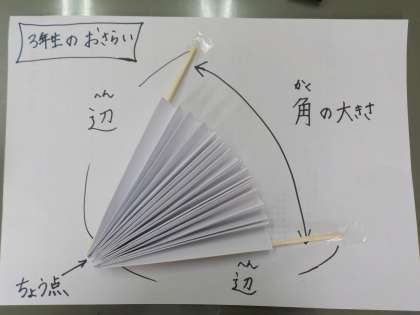 3年生のおさらい
へん
辺
かく
角の大きさ
ちょう点
へん
辺